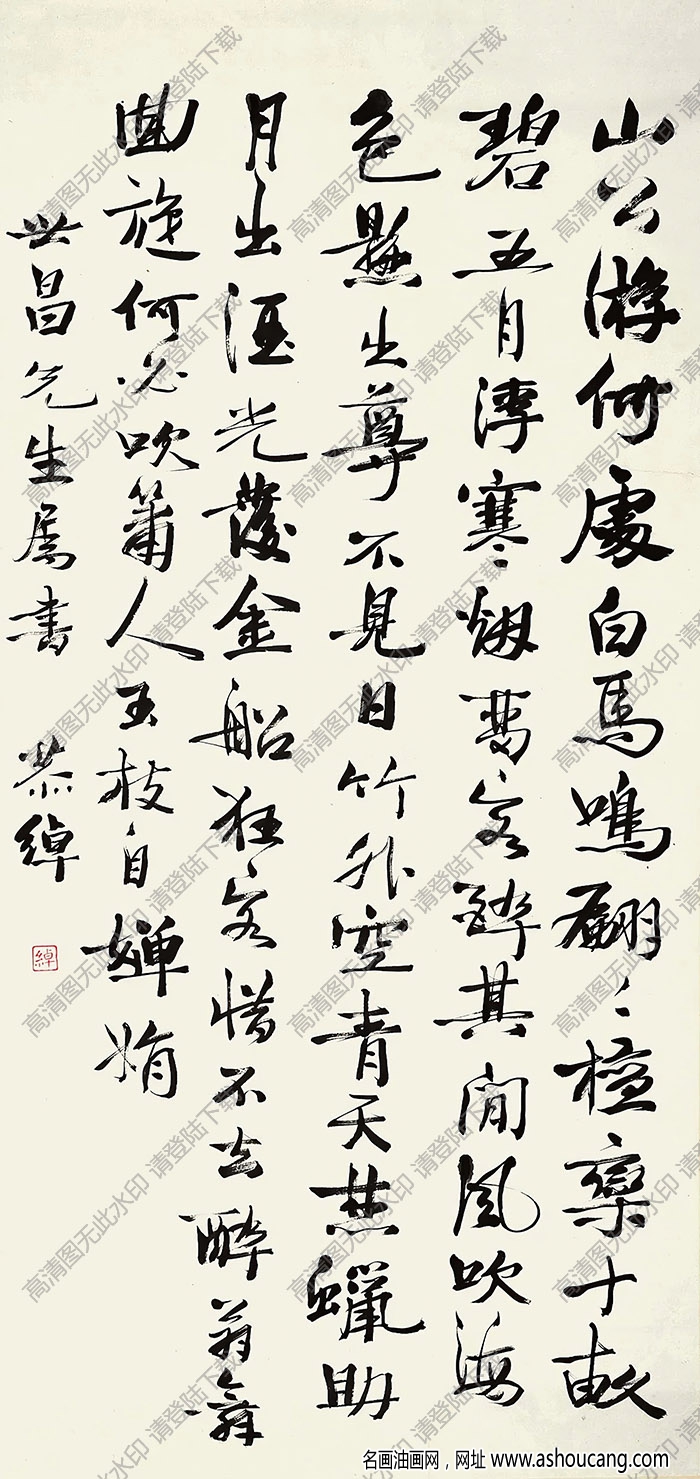 山公游何處白馬鳴翩〻檀欒十畝
碧五月渟寒烟客醉其間風吹海
色懸出尊不見日竹外空青天蠟助
月出酒光發金船狂客惜不去醉翁舞
曲旋何必吹簫人玉枝自嬋娟
世昌先生屬書 恭綽
綽
高清图无此水印 请登陆下载
名画油画网，网址 www.ashoucang.com